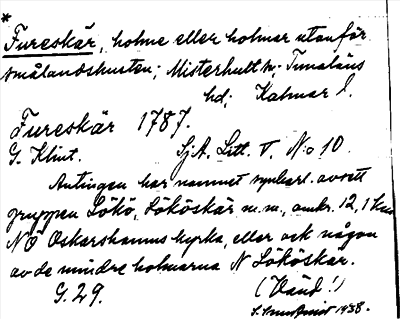 *
Fureskär, holme eller holmar utanför
smålandskusten; Misterhult sn; Tunaläns
hd; Kalmar l.
Fureskär 1787.
G. Klint. SjA. Litt. V. No 10.
Antingen har namnet synbarl. avsett
gruppen Lökö, Lököskär m.m., omkr. 12,1 km
NÖ Oskarshamns kyrka, eller ock någon
av de mindre holmarna N Lököskär.
G. 29. (Vänd!)
1938.